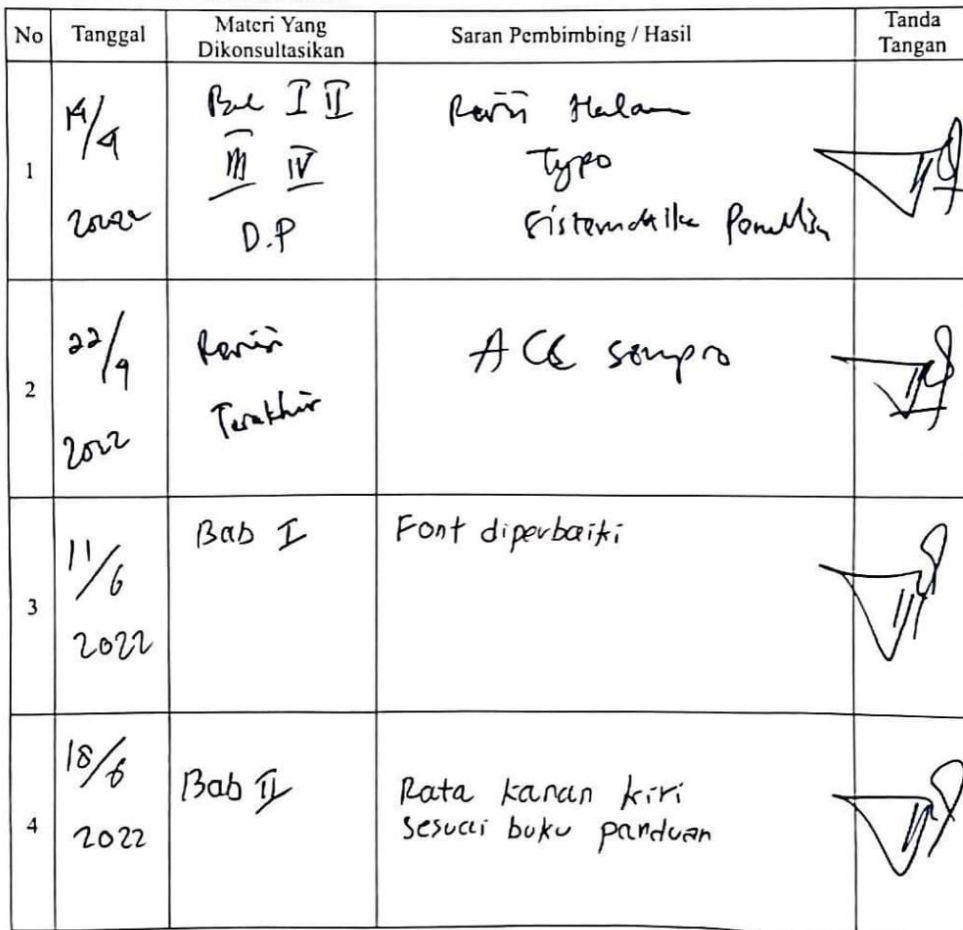 No Tanggal Materi Yang Dikonsultasikan Saran Pembimbing / Hasil Tanda Tangan
1
14/4
2022
Bab I II
III IV
D.P
Revisi Halaman
Typo
Sistematika Penulisan
2
22/4
2022
Revisi
Terakhir
ACC sempro
3
11/6
2022
Bab I
Font diperbaiki
4
18/6
2022
Bab II
Rata kanan kiri
sesuai buku panduan